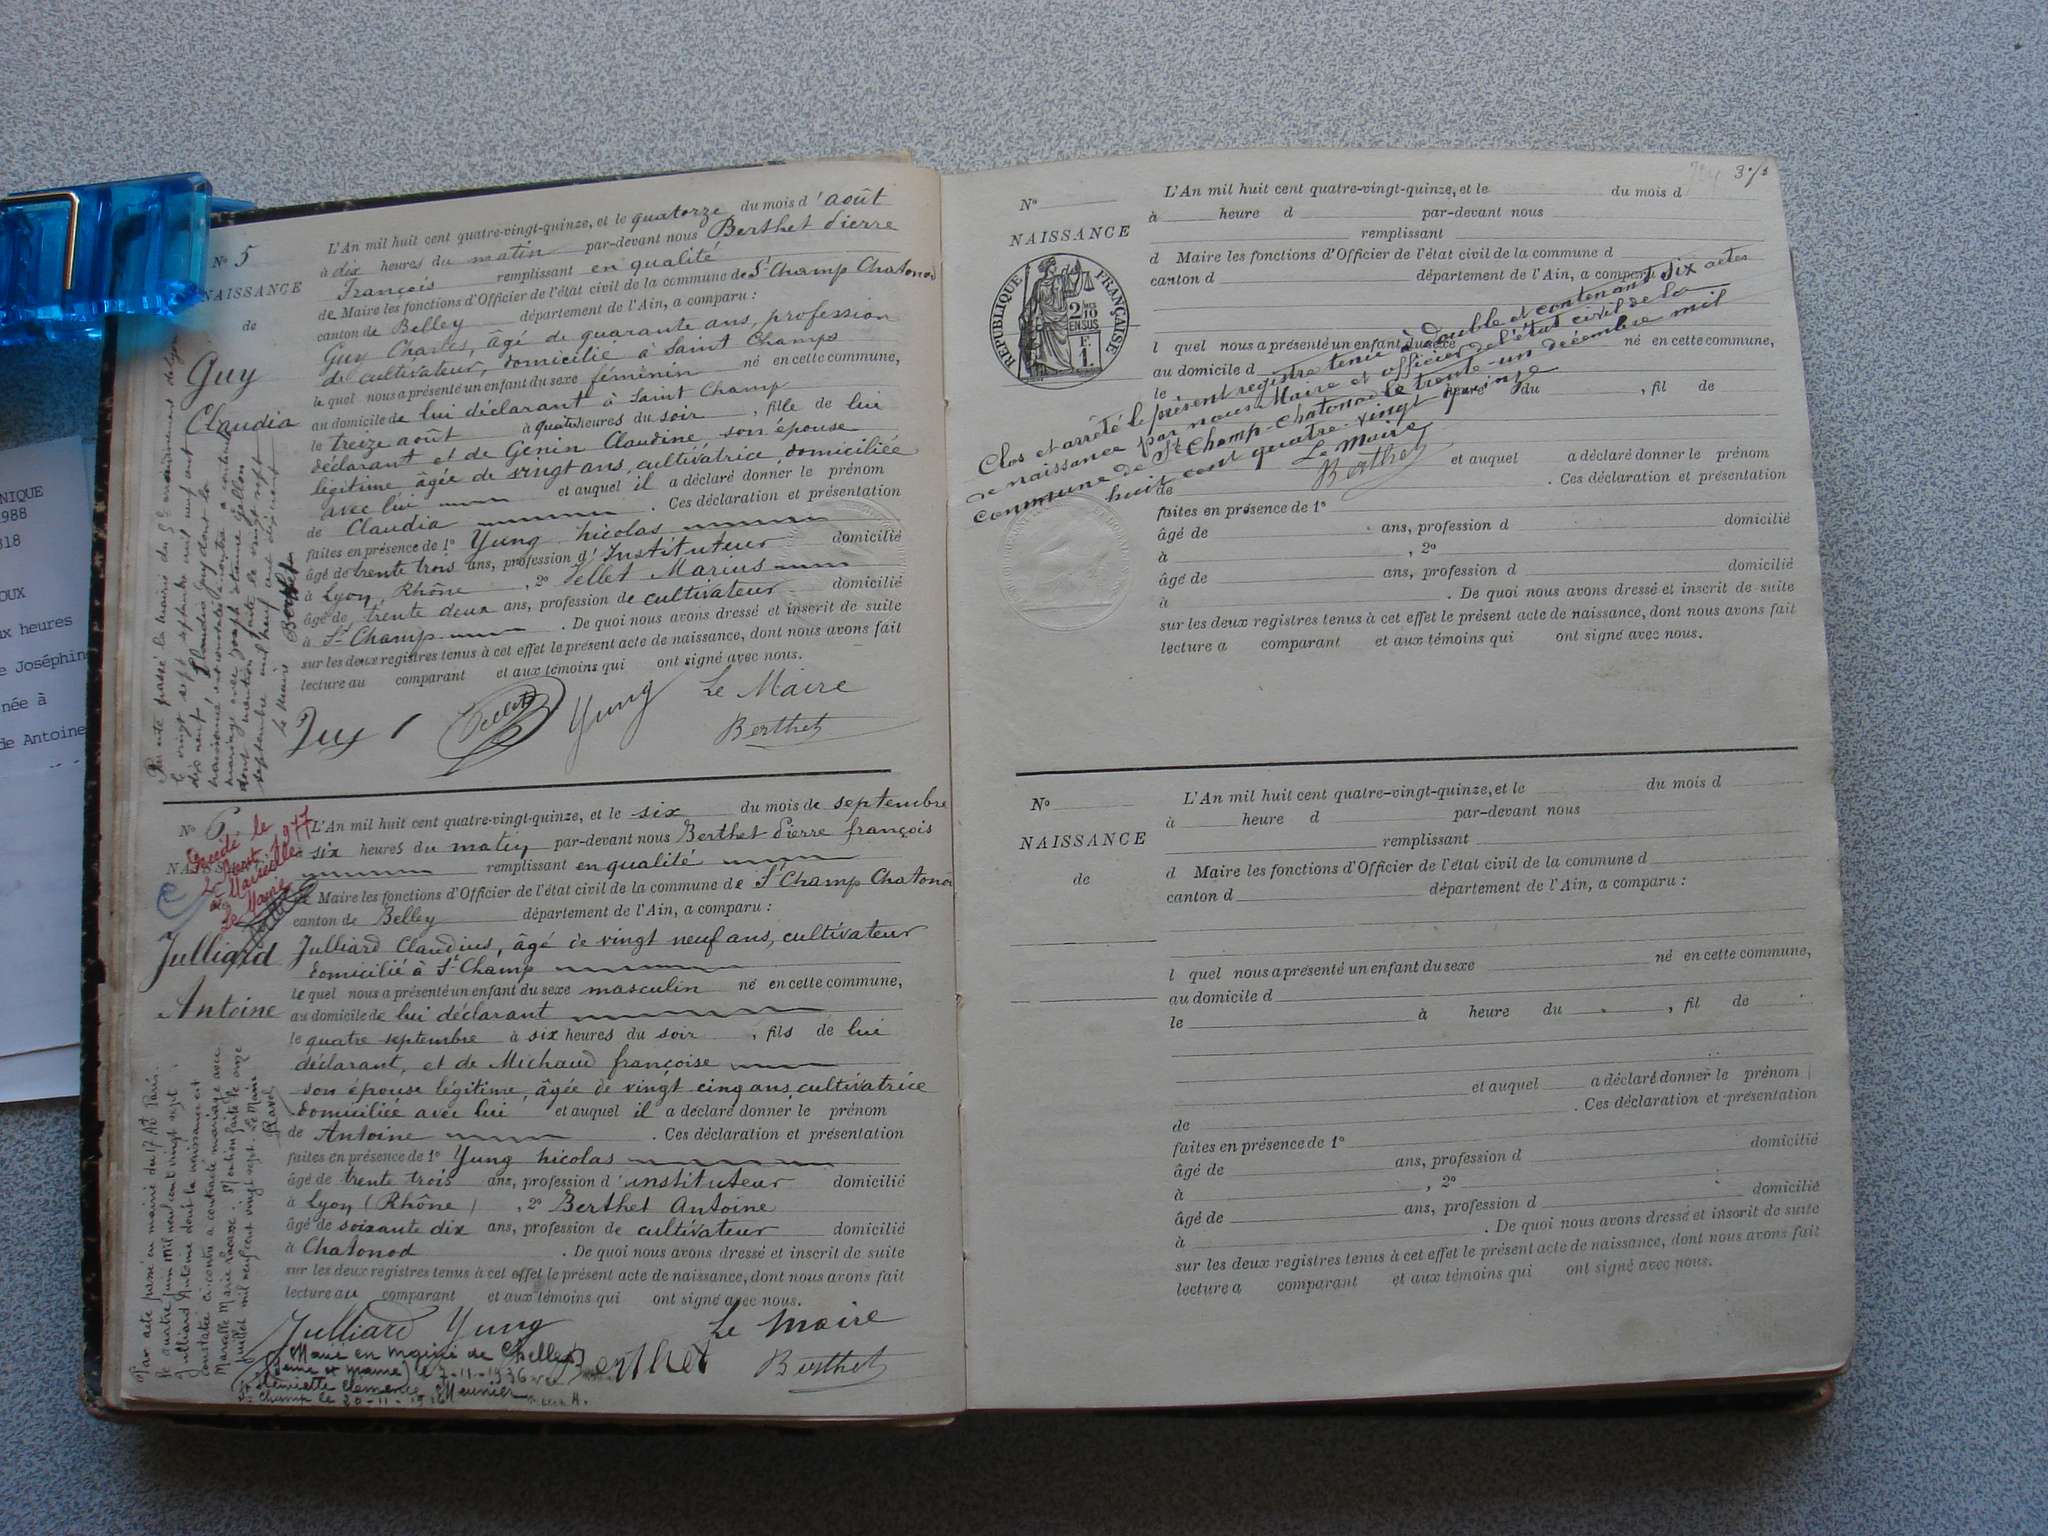 NIQUE
1988
818
OUX
ux heures
e Joséphin
née à
de Antoine
N° 5
NAISSANCE
de
Guy
Claudia
L'An mil huit cent quatre-vingt-quinze, et le quatorze du mois d'août
à dix heures du matin par-devant nous Berthet Pierre
François remplissant en qualité
de Maire les fonctions d'Officier de l'état civil de la commune de St Champ Chatonod
canton de Belley département de l'Ain, a comparu :
Guy Charles, âgé de quarante ans, profession
de cultivateur, domicilié à Saint Champ
lequel nous a présenté un enfant du sexe féminin né en cette commune,
au domicile de lui déclarant à Saint Champ
le treize août à quatre heures du soir, fille de lui
déclarant et de Genin Claudine, son épouse
légitime âgée de vingt ans, cultivatrice domiciliée
avec lui et auquel il a déclaré donner le prénom
de Claudia. Ces déclaration et présentation
faites en présence de 1° Yung Nicolas
âgé de trente trois ans, profession d'Instituteur domicilié
à Lyon, Rhône, 2° Pellet Marius
âgé de trente deux ans, profession de cultivateur domicilié
à St Champ. De quoi nous avons dressé et inscrit de suite
sur les deux registres tenus à cet effet le présent acte de naissance, dont nous avons fait
lecture au comparant et aux témoins qui ont signé avec nous.
Guy Pellet Yung Le Maire
Berthet
Par acte passé la mairie du
le vingt sept septembre mil neuf cent
dix neuf, Claudia Guy dont la
naissance est constatée ci-contre a contracté
mariage avec Joseph Etienne Guillon
dont mention faite le vingt sept
septembre mil neuf cent dix neuf
Le Maire Berthet
N° 6
NAISSANCE
Décédé le
2 1977
à Marseille
Le Maire
Julliard
Antoine
L'An mil huit cent quatre-vingt-quinze, et le six du mois de septembre
à six heures du matin par-devant nous Berthet Pierre françois
remplissant en qualité
de Maire les fonctions d'Officier de l'état civil de la commune de St Champ Chatonod
canton de Belley département de l'Ain, a comparu :
Julliard Claudius, âgé de vingt neuf ans, cultivateur
domicilié à St Champ
lequel nous a présenté un enfant du sexe masculin né en cette commune,
au domicile de lui déclarant
le quatre septembre à six heures du soir, fils de lui
déclarant, et de Michaud françoise
son épouse légitime, âgée de vingt cinq ans, cultivatrice
domiciliée avec lui et auquel il a déclaré donner le prénom
de Antoine. Ces déclaration et présentation
faites en présence de 1° Yung Nicolas
âgé de trente trois ans, profession d'instituteur domicilié
à Lyon (Rhône), 2° Berthet Antoine
âgé de soixante dix ans, profession de cultivateur domicilié
à Chatonod. De quoi nous avons dressé et inscrit de suite
sur les deux registres tenus à cet effet le présent acte de naissance, dont nous avons fait
lecture au comparant et aux témoins qui ont signé avec nous.
Julliard Yung Le Maire
Berthet Berthet
Marié en mairie de Chelles
(Seine et Marne) le 7-11-1936 avec
Henriette Clémence Meunier
St Champ le 20-11-1936
Par acte passé en mairie du 17 At Paris
le quatre juin mil neuf cent vingt sept,
Julliard Antoine dont la naissance est
constatée ci-contre a contracté mariage avec
Marcelle Marie Lacasse. Mention faite le onze
juillet mil neuf cent vingt sept. Le Maire
Ravet
3·/3
N°
NAISSANCE
RÉPUBLIQUE FRANÇAISE
2/10 EN SUS
F. 1.
L'An mil huit cent quatre-vingt-quinze, et le du mois d
à heure d par-devant nous
remplissant
d Maire les fonctions d'Officier de l'état civil de la commune d
canton d département de l'Ain, a comparu
l quel nous a présenté un enfant du sexe né en cette commune,
au domicile d
le heure du, fil de
et auquel a déclaré donner le prénom
de. Ces déclaration et présentation
faites en présence de 1°
âgé de ans, profession d domicilié
à, 2°
âgé de ans, profession d domicilié
à. De quoi nous avons dressé et inscrit de suite
sur les deux registres tenus à cet effet le présent acte de naissance, dont nous avons fait
lecture a comparant et aux témoins qui ont signé avec nous.
Clos et arrêté le présent registre tenu à double et contenant six actes
de naissance par nous Maire et officier de l'état civil de la
commune de St Champ-Chatonod le trente-un décembre mil
huit cent quatre-vingt quinze
Le Maire
Berthet
N°
NAISSANCE
de
L'An mil huit cent quatre-vingt-quinze, et le du mois d
à heure d par-devant nous
remplissant
d Maire les fonctions d'Officier de l'état civil de la commune d
canton d département de l'Ain, a comparu :
l quel nous a présenté un enfant du sexe né en cette commune,
au domicile d
le à heure du, fil de
et auquel a déclaré donner le prénom
de. Ces déclaration et présentation
faites en présence de 1°
âgé de ans, profession d domicilié
à, 2°
âgé de ans, profession d domicilié
à. De quoi nous avons dressé et inscrit de suite
sur les deux registres tenus à cet effet le présent acte de naissance, dont nous avons fait
lecture a comparant et aux témoins qui ont signé avec nous.